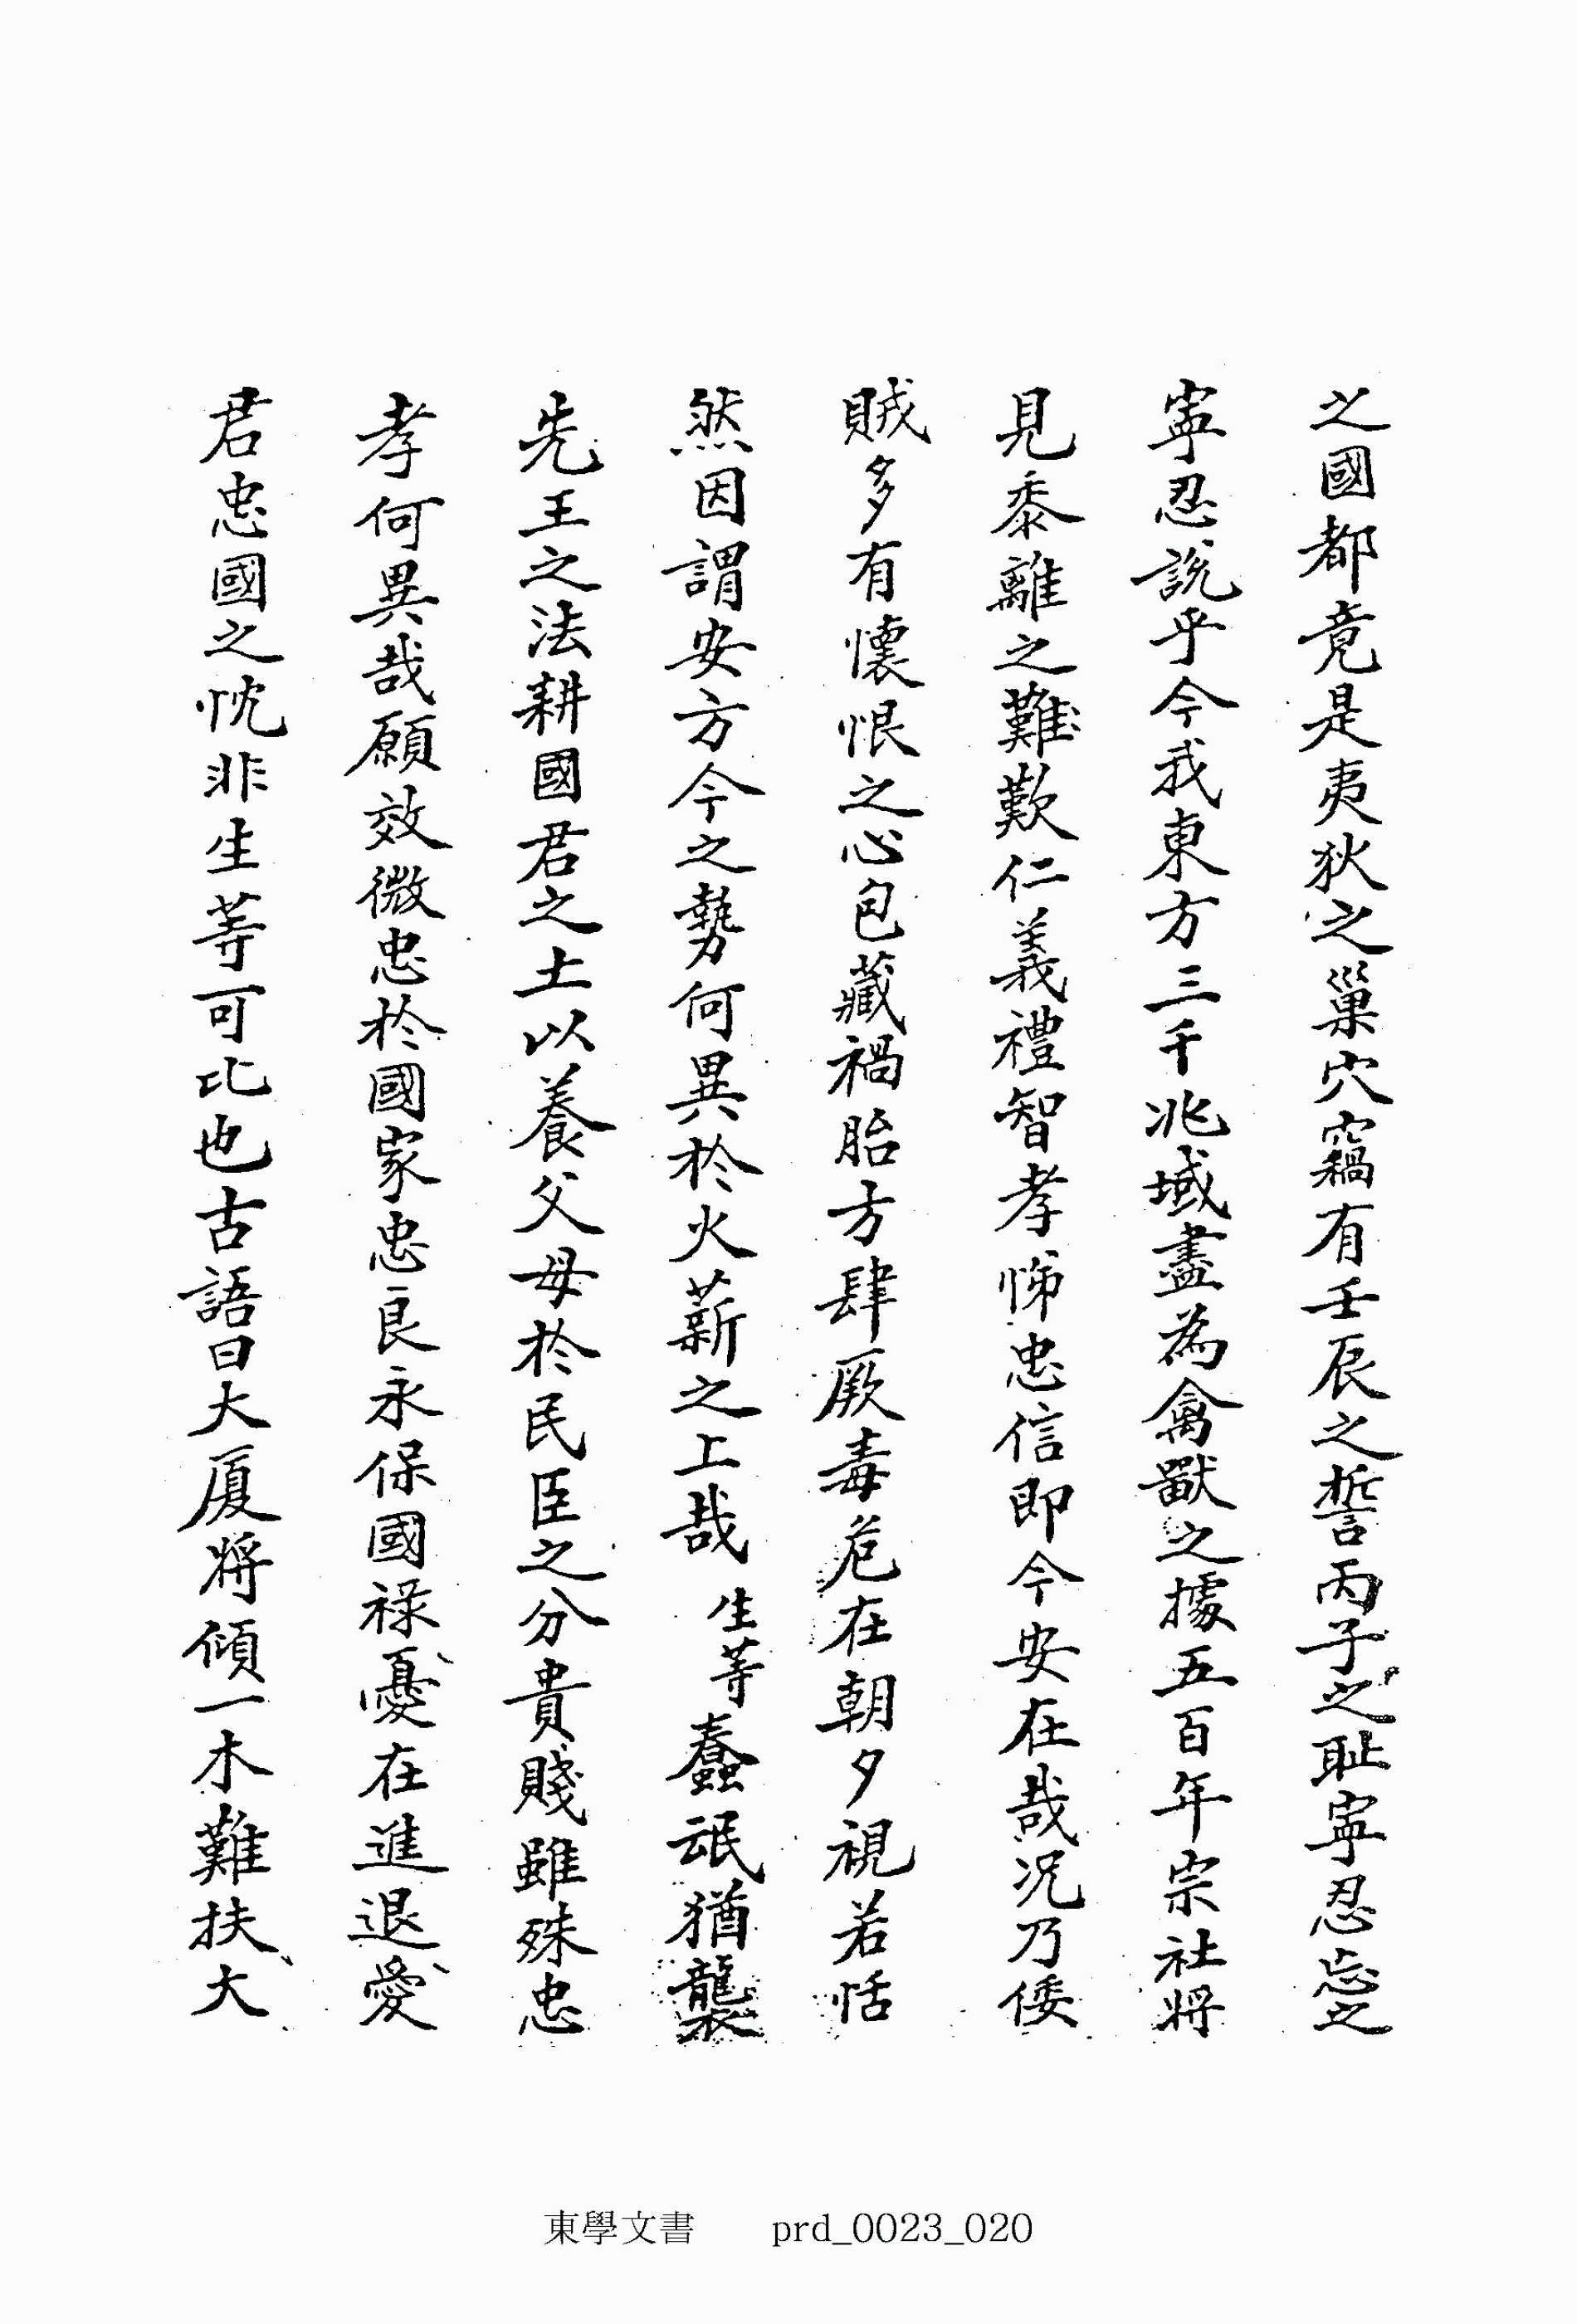 之國都竟是夷狄之巢穴竊有壬辰之誓丙子之恥寧忍忘之
寧忍說乎今我東方三千兆域盡為禽獸之據五百年宗社將
見黍離之難歎仁義禮智孝悌忠信即今安在哉况乃倭
賊多有懷恨之心包藏禍胎方肆厥毒危在朝夕視若恬
然因謂安方今之勢何異於火薪之上哉生等蠢氓猶襲
先王之法耕國君之土以養父母於民臣之分貴賤雖殊忠
孝何異哉願效微忠於國家忠良永保國祿憂在進退愛
君忠國之忱非生等可比也古語曰大厦將傾一木難扶大
東學文書 prd_0023_020